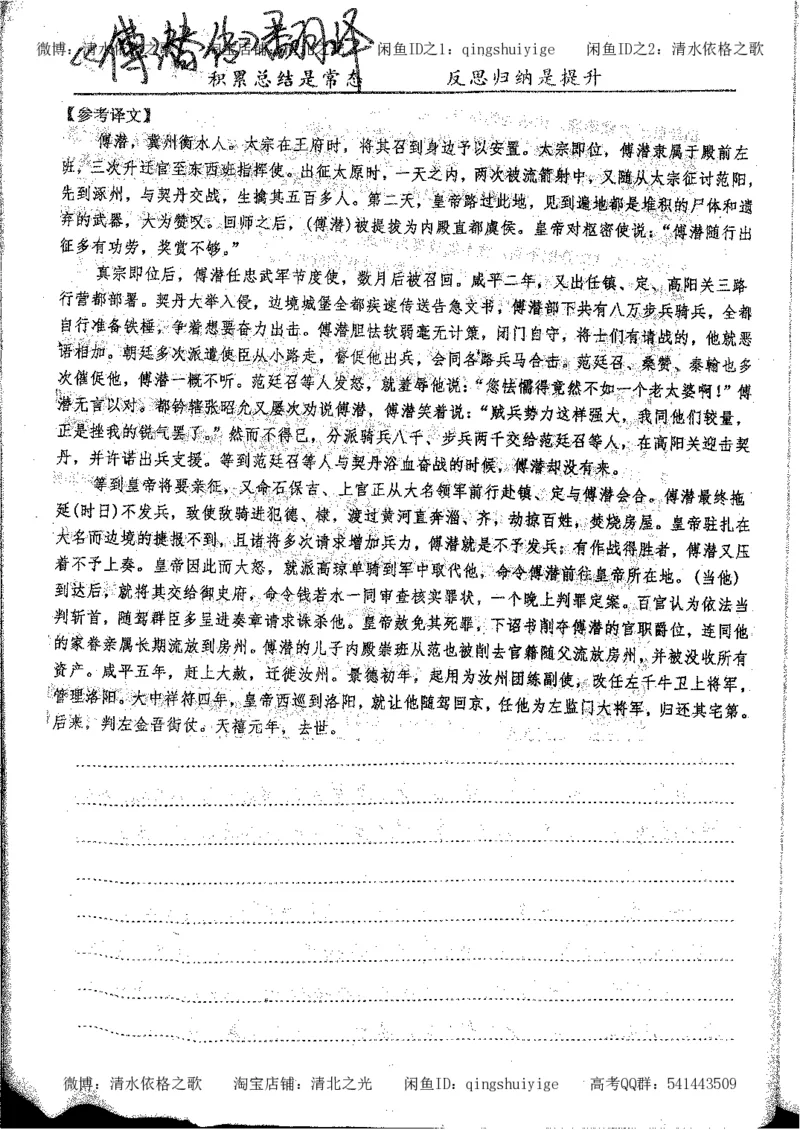 微博：清水依格之歌 淘宝店铺：清北之光 闲鱼ID之1：qingshuiyige 闲鱼ID之2：清水依格之歌
《傅潜传》翻译
积累总结是常态 反思归纳是提升
【参考译文】
傅潜，冀州衡水人。太宗在王府时，将其召到身边予以安置。太宗即位，傅潜隶属于殿前左
班，三次升迁官至东西班指挥使。出征太原时，一天之内，两次被流箭射中，又随从太宗征讨范阳，
先到涿州，与契丹交战，生擒其五百多人。第二天，皇帝路过此地，见到遍地都是堆积的尸体和遗
弃的武器，大为赞叹。回师之后，(傅潜)被提拔为内殿直都虞侯。皇帝对枢密使说：“傅潜随行出
征多有功劳，奖赏不够。”
真宗即位后，傅潜任忠武军节度使，数月后被召回。咸平二年，又出任镇、定、高阳关三路
行营都部署。契丹大举入侵，边境城堡全都疾速传送告急文书，傅潜部下共有八万步兵骑兵，全都
自行准备铁棰，争着想要奋力出击。傅潜胆怯软弱毫无计策，闭门自守，将士们有请战的，他就恶
语相加。朝廷多次派遣使臣从小路走，督促他出兵，会同各路兵马合击。范廷召、桑赞、秦翰也多
次催促他，傅潜一概不听。范廷召等人发怒，就羞辱他说：“您怯懦得竟然不如一个老太婆啊！”傅
潜无言以对。都钤辖张昭允又屡次劝说傅潜，傅潜笑着说：“贼兵势力这样强大，我同他们较量，
正是挫我的锐气罢了。”然而不得已，分派骑兵八千、步兵两千交给范廷召等人，在高阳关迎击契
丹，并许诺出兵支援。等到范廷召等人与契丹浴血奋战的时候，傅潜却没有来。
等到皇帝将要亲征，又命石保吉、上官正从大名领军前行赴镇、定与傅潜会合。傅潜最终拖
延(时日)不发兵，致使敌骑进犯德、棣，渡过黄河直奔淄、齐，劫掠百姓，焚烧房屋。皇帝驻扎在
大名而边境的捷报不到，且诸将多次请求增加兵力，傅潜就是不予发兵；有作战得胜者，傅潜又压
着不予上奏。皇帝因此而大怒，就派高琼单骑到军中取代他，命令傅潜前往皇帝所在地。(当他)
到达后，就将其交给御史府，命令钱若水一同审查核实罪状，一个晚上判罪定案。百官认为依法当
判斩首，随驾群臣多呈进奏章请求诛杀他。皇帝赦免其死罪，下诏书削夺傅潜的官职爵位，连同他
的家眷亲属长期流放到房州。傅潜的儿子内殿崇班从范也被削去官籍随父流放房州，并被没收所有
资产。咸平五年，赶上大赦，迁徙汝州。景德初年，起用为汝州团练副使，改任左千牛卫上将军，
管理洛阳。大中祥符四年，皇帝西巡到洛阳，就让他随驾回京，任他为左监门大将军，归还其宅第。
后来，判左金吾街仗。天禧元年，去世。
微博：清水依格之歌 淘宝店铺：清北之光 闲鱼ID：qingshuiyige 高考QQ群：541443509